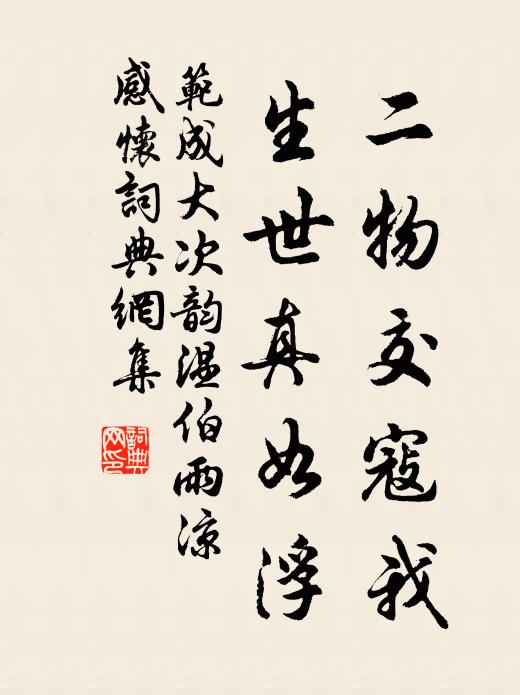 二物交寇我
生世真如浮
範成大次韵温伯雨涼
感懷詞典網集
詞典
网印